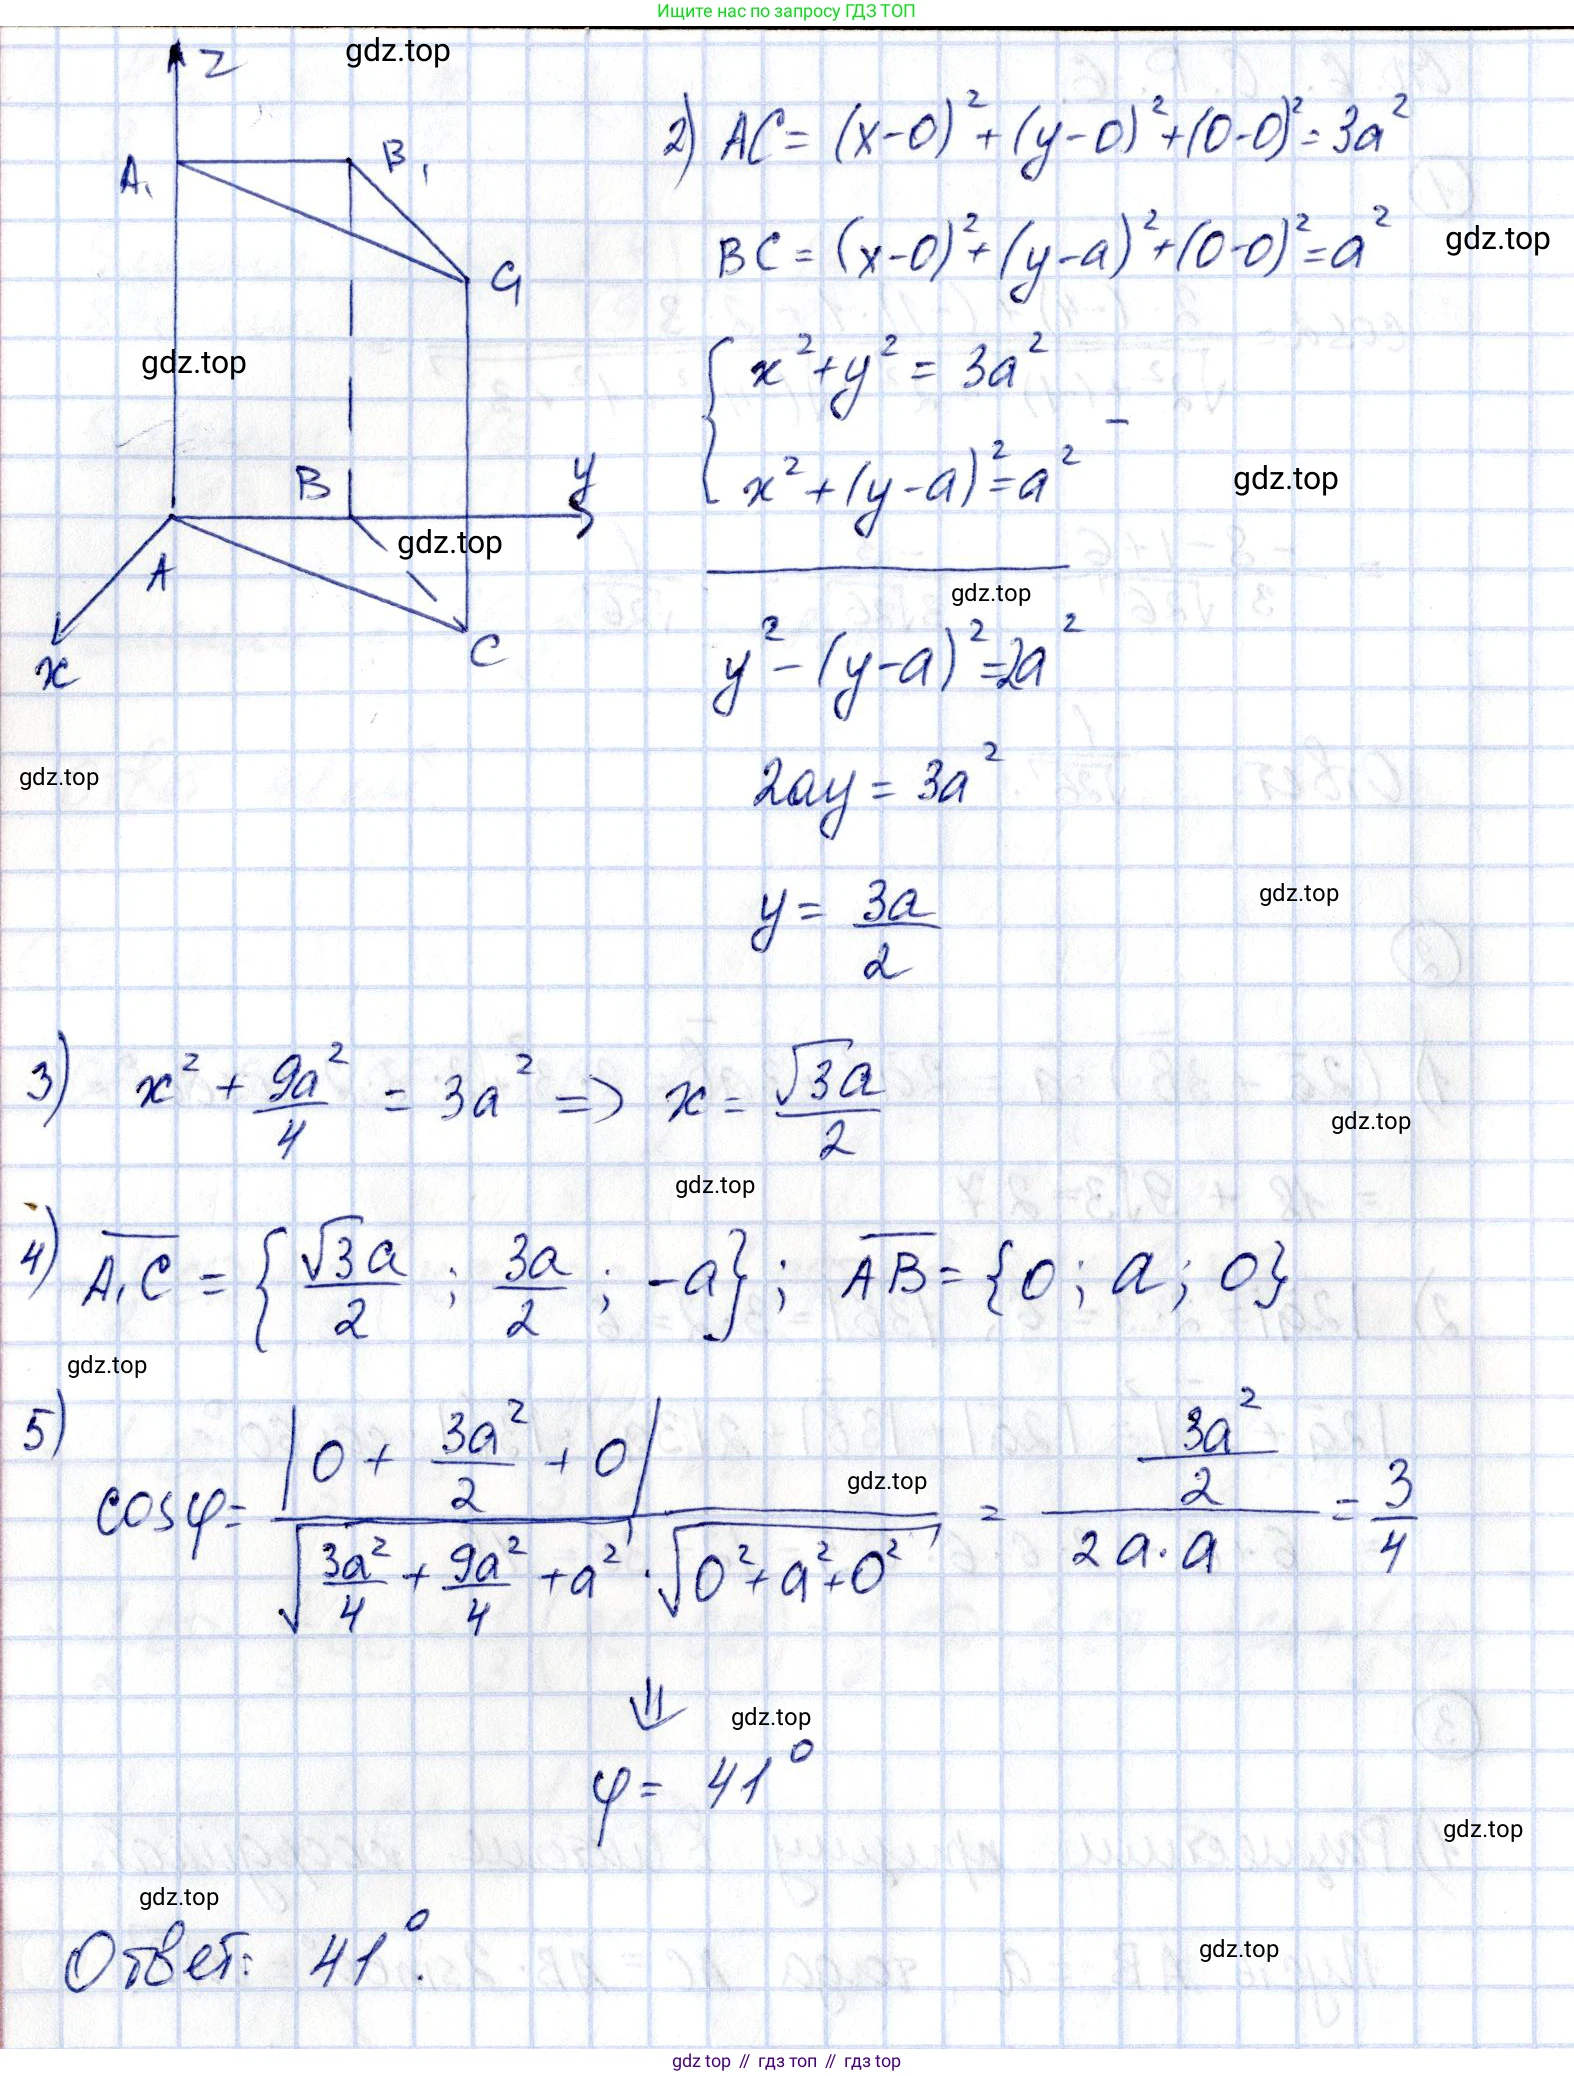 Ищите нас по запросу ГДЗ ТОП
z
gdz.top
A₁
B₁
C₁
gdz.top
B
y
A
gdz.top
x
C
gdz.top
2) AC = (x-0)² + (y-0)² + (0-0)² = 3a²
BC = (x-0)² + (y-a)² + (0-0)² = a²
gdz.top
{ x² + y² = 3a²
x² + (y-a)² = a² -
gdz.top
gdz.top
y² - (y-a)² = 2a²
2ay = 3a²
y = 3a/2
gdz.top
3) x² + 9a²/4 = 3a² => x = √3a/2
gdz.top
gdz.top
4) A₁C = {√3a/2 ; 3a/2 ; -a} ; AB = {0 ; a ; 0}
gdz.top
5) cosφ = |0 + 3a²/2 + 0| / √(3a²/4 + 9a²/4 + a²) · √(0² + a² + 0²) = (3a²/2) / (2a·a) = 3/4
gdz.top
⇓
gdz.top
φ = 41°
gdz.top
gdz.top
Ответ: 41°.
gdz.top
gdz top // гдз топ // гдз top